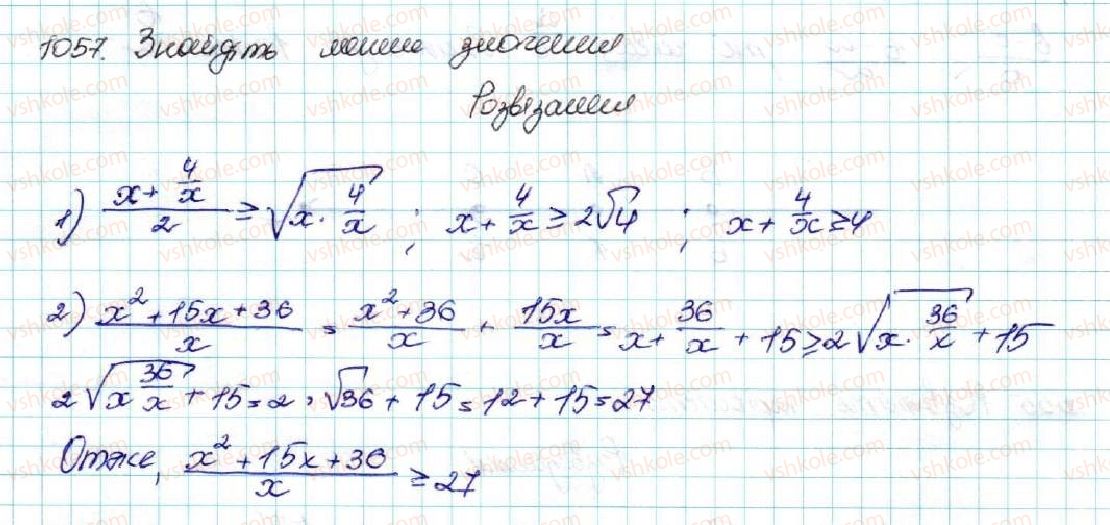 1057. Знайдіть менше значення
Розв'язання
1) (x + 4/x)/2 ≥ √(x · 4/x) ; x + 4/x ≥ 2√4 ; x + 4/x ≥ 4
2) (x² + 15x + 36)/x = (x² + 36)/x + 15x/x = x + 36/x + 15 ≥ 2√(x · 36/x) + 15
2√(x 36/x) + 15 = 2 · √36 + 15 = 12 + 15 = 27
Отже, (x² + 15x + 36)/x ≥ 27